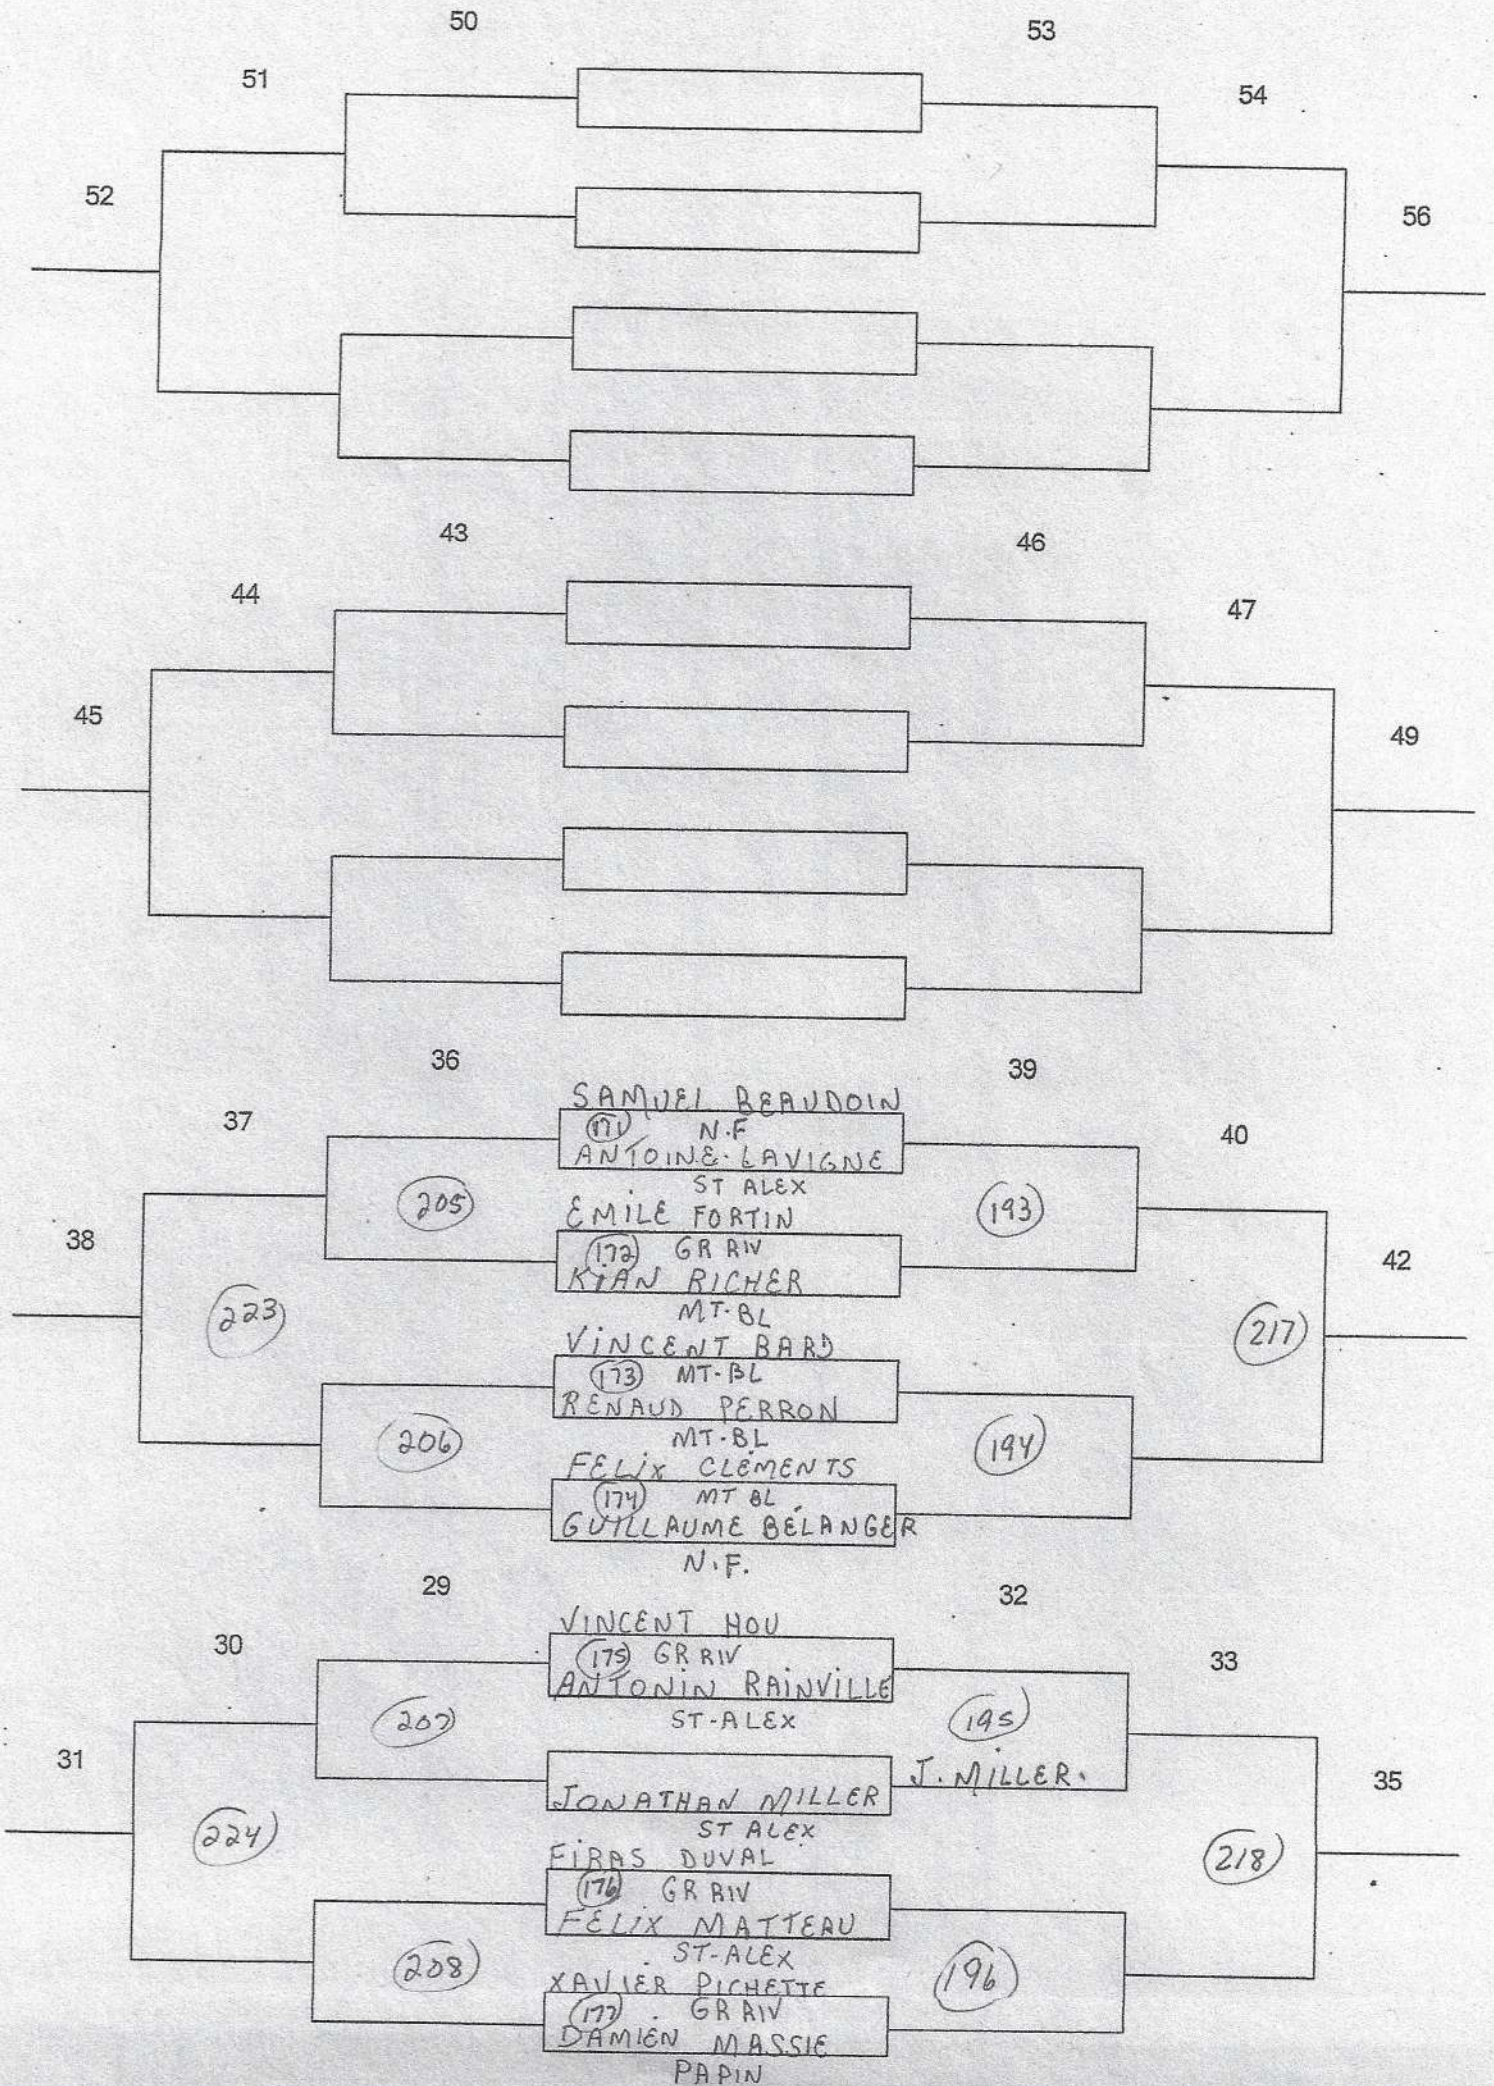 50
53
51
54
52
56
43
46
44
47
45
49
36
39
SAMUEL BEAUDOIN
37
171 N.F
40
ANTOINE-LAVIGNE
ST ALEX
205
EMILE FORTIN
193
38
172 GR RIV
42
KIAN RICHER
MT-BL
223
217
VINCENT BARD
173 MT-BL
RENAUD PERRON
206
MT-BL
194
FELIX CLEMENTS
174 MT BL
GUILLAUME BÉLANGER
N.F.
29
32
VINCENT HOU
30
175 GR RIV
33
ANTONIN RAINVILLE
207
ST-ALEX
195
31
J. MILLER.
35
JONATHAN MILLER
ST ALEX
224
218
FIRAS DUVAL
176 GR RIV
FÉLIX MATTEAU
ST-ALEX
208
XAVIER PICHETTE
196
177 GR RIV
DAMIEN MASSIE
PAPIN